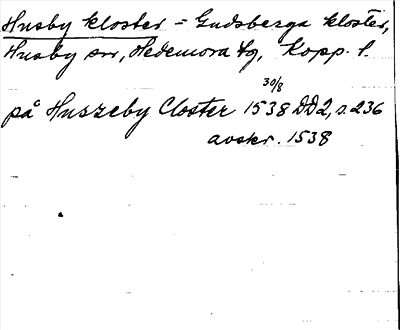 Husby kloster = Gudsberga kloster,
Husby sn, Hedemora tg, Kopp. l.
på Huszeby Closter 1538 30/8 DD2, s. 236
avskr. 1538